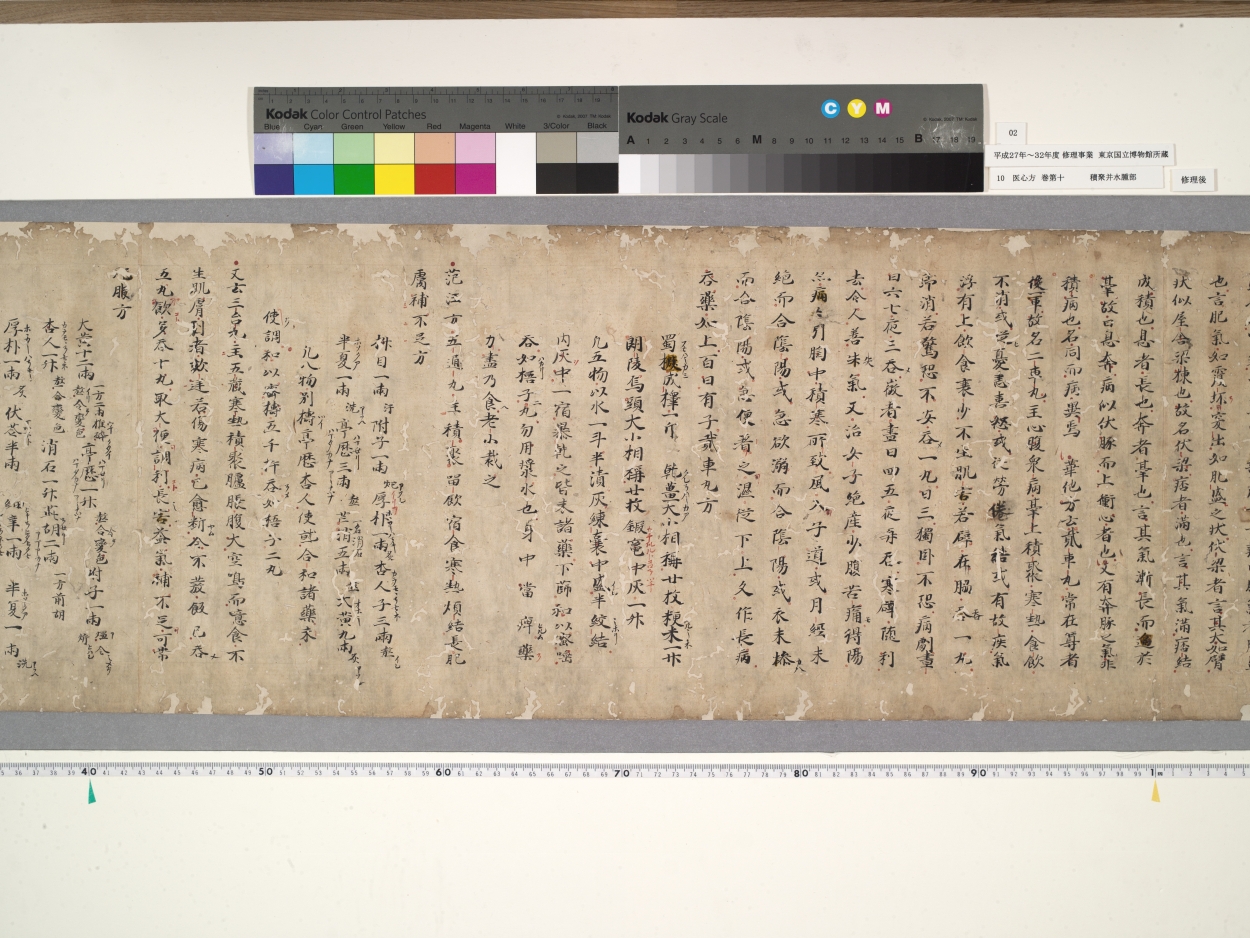 Kodak Color Control Patches
Blue Cyan Green Yellow Red Magenta White 3/Color Black
Kodak Gray Scale
C Y M
A 1 2 3 4 5 6 M 8 9 10 11 12 13 14 15 B 17 18 19
02
平成27年～32年度 修理事業 東京国立博物館所蔵
10 医心方 巻第十 積聚并水腫部
修理後
也言肥氣如霄坏突出如肥盛之状伏梁者言其大如臂
状似屋舎梁棟也故名伏梁痞者満也言其氣満痞結
成積也息者長也奔者革也言其氣漸長而逼於
其故曰息奔病似伏豚而上衝心者也又有奔豚之氣非
積病也名同而病異焉 華他方云貳車九常在尊者
後軍故名二車丸主心腹衆病革上積聚寒熱食飲
不消或従憂恚喜怒或従労倦氣結或有故疾氣
浮有上飲食衰少不生肌害若癖在脇吞一丸
即消若驚恐不安吞一丸日三獨卧不恐病劇晝
日六七夜三吞微者晝日四五夜再石寒癖随利
去令人善米氣又治女子絶産少腹苦痛得陽
亦痛引胸中積寒所致風入子道或月經未
絶而合陰陽或急欲溺而合陰陽或衣未燥
而合陰陽或急便著之温従下上久作長病
吞藥如上百日有子貳車九方
蜀椒成擇一升 乾薑大小相稱廿枚粳米一升
朗陵烏頭大小相稱廿枚 煅竈中灰一升
凡五物以水一斗半漬灰練囊中盛半絞結
内灰中一宿暴乾之皆末諸藥下篩和以蜜唾
吞如梧子丸勿用漿水也身中當痺藥
力盡乃食老小裁之
范江方五通九主積聚留飲宿食寒熱煩結長肥
膚補不足方
件目一兩 附子一兩 厚朴一兩 杏人子三兩
半夏一兩 洗 亭歴三兩 熬 芒消五兩 大黄九兩
凡八物別擣亭歴杏人使就合和諸藥末
使調和以蜜擣五千杵吞如梧子二丸
又云三台丸主五蔵寒熱積聚臚脹腹大空鳴而噫食不
生肌膚到者欬逆若傷寒病已愈新令不發飯已吞
五丸飲多吞十丸取大便調利長害蚕氣補不足可常
服方
大黄十二兩 亭歴一升 熬令變色 附子一兩
杏人一升 熬變色 消石一升 茈胡二兩 一方前胡
厚朴一兩 炙 伏苓半兩 半夏一兩 洗